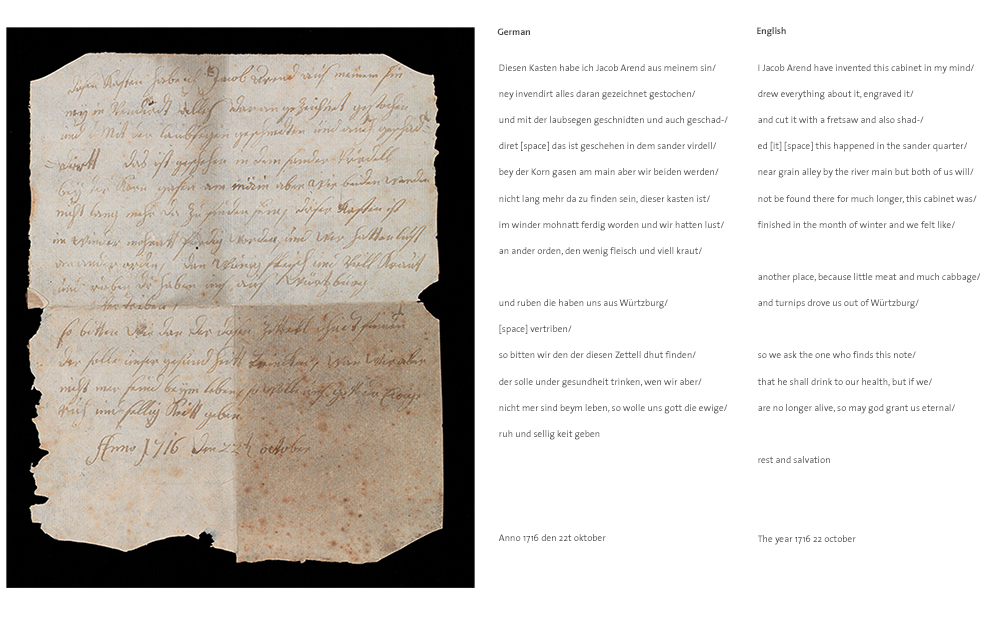 disen Kasten habe ich Jacob Arend auß meinem sin
ney invendirt alles daran gezeichnet gestochen
und mit der laubsegen geschnidten und auch geschad
dirett das ist geschehen in dem sander virdell
bey der Korn gasen am main aber wir beiden werden
nicht lang mehr da zu finden sein, diser Kasten ist
im winder mohnatt ferdig worden, und wir hatten lust
an ander orden, den wenig fleisch und viell Kraut
und ruben die haben uns auß Würtzburg
vertriben
so bitten wir den der disen Zettell dhut finden
der solle unser gesundheitt trincken, wen wir aber
nicht mer seind beym leben, so wolle uns gott die Ewige
ruh und sellig Keitt geben
Anno 1716 den 22t october
German
Diesen Kasten habe ich Jacob Arend aus meinem sin/
ney invendirt alles daran gezeichnet gestochen/
und mit der laubsegen geschnidten und auch geschad-/
diret [space] das ist geschehen in dem sander virdell/
bey der Korn gasen am main aber wir beiden werden/
nicht lang mehr da zu finden sein, dieser kasten ist/
im winder mohnatt ferdig worden und wir hatten lust/
an ander orden, den wenig fleisch und viell kraut/
und ruben die haben uns aus Würtzburg/
[space] vertriben/
so bitten wir den der diesen Zettell dhut finden/
der solle under gesundheit trinken, wen wir aber/
nicht mer sind beym leben, so wolle uns gott die ewige/
ruh und sellig keit geben
Anno 1716 den 22t oktober
English
I Jacob Arend have invented this cabinet in my mind/
drew everything about it, engraved it/
and cut it with a fretsaw and also shad-/
ed [it] [space] this happened in the sander quarter/
near grain alley by the river main but both of us will/
not be found there for much longer, this cabinet was/
finished in the month of winter and we felt like/
another place, because little meat and much cabbage/
and turnips drove us out of Würtzburg/
so we ask the one who finds this note/
that he shall drink to our health, but if we/
are no longer alive, so may god grant us eternal/
rest and salvation
The year 1716 22 october